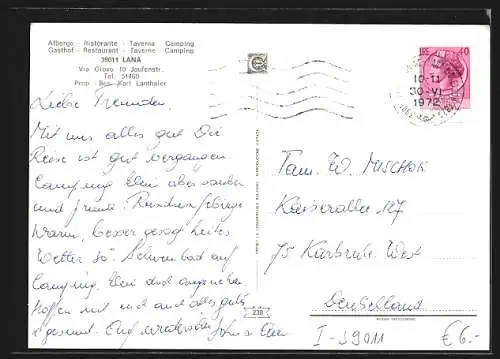 Albergo - Ristorante - Taverna Camping
Gasthof - Restaurant - Taverne Camping
39011 LANA
Via Giovo 10 Jaufenstr.
Tel. 51469
Prop. - Bes. Karl Lanthaler
Liebe Freunden.
Mit uns alles gut Die
Reise ist gut vergangen
Camping klein aber sauber
und prima. Rundum Gebirge
Warm, besser gesagt heites
Wetter so. Schwimbad auf
Camping. Klein und angenehm.
Hoffen mit euch auch alles gute
gesund. Auf wiedersehn
238
ITS. 40
10-11
30-VI
1972
Fam. W. MISCHOK
Kaiserallee 127
75 Karlsruhe West
Deutschland
I-39011
€ 6.-